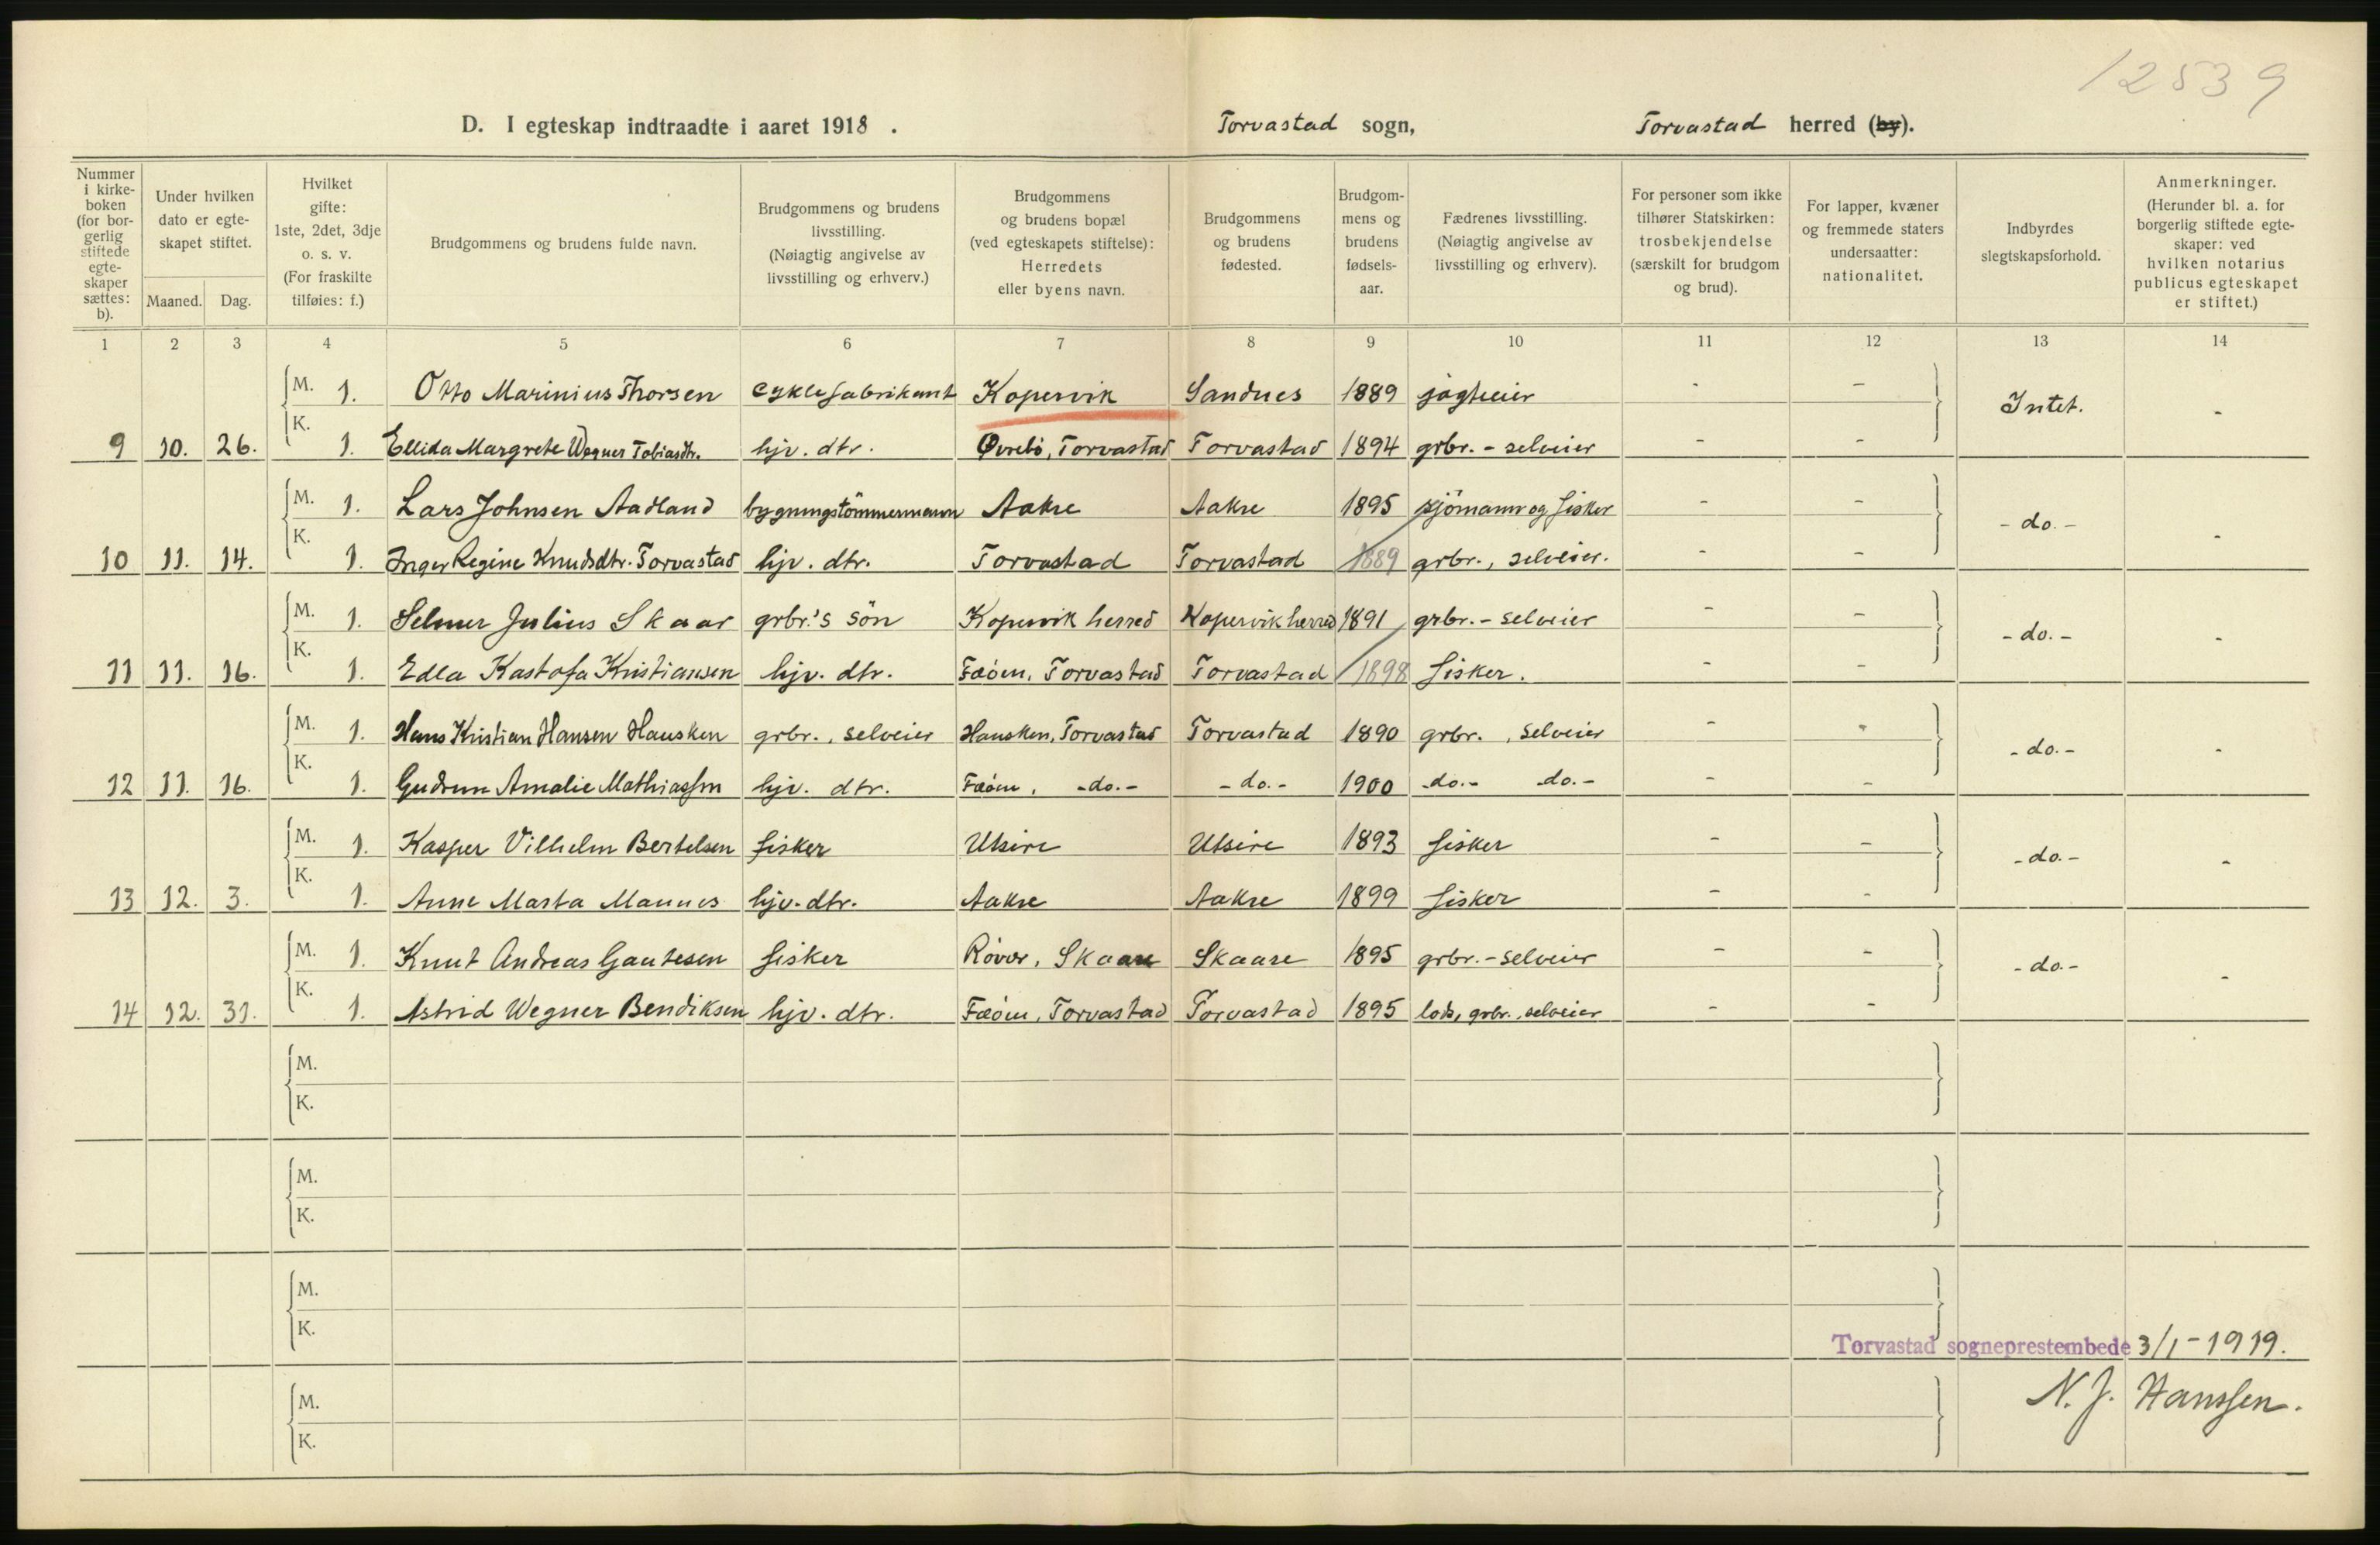 12539
D. I egteskap indtraadte i aaret 1918 . Torvastad sogn, Torvastad herred (by).
Nummer i kirkeboken (for borgerlig stiftede egteskaper sættes: b).
Under hvilken dato er egteskapet stiftet.
Maaned. Dag.
Hvilket gifte: 1ste, 2det, 3dje o. s. v. (For fraskilte tilføies: f.)
Brudgommens og brudens fulde navn.
Brudgommens og brudens livsstilling. (Nøiagtig angivelse av livsstilling og erhverv.)
Brudgommens og brudens bopæl (ved egteskapets stiftelse): Herredets eller byens navn.
Brudgommens og brudens fødested.
Brudgommens og brudens fødselsaar.
Fædrenes livsstilling. (Nøiagtig angivelse av livsstilling og erhverv).
For personer som ikke tilhører Statskirken: trosbekjendelse (særskilt for brudgom og brud).
For lapper, kvæner og fremmede staters undersaatter: nationalitet.
Indbyrdes slegtskapsforhold.
Anmerkninger. (Herunder bl. a. for borgerlig stiftede egteskaper: ved hvilken notarius publicus egteskapet er stiftet.)
1 2 3 4 5 6 7 8 9 10 11 12 13 14
M. 1. Otto Marinius Thorsen cyklefabrikant Kopervik Sandnes 1889 jagteier - - Intet. -
9 10. 26. K. 1. Ellida Margrete Wegner Tobiasdtr. hjv. dtr. Øvrebö, Torvastad Torvastad 1894 grbr. - selveier - -
M. 1. Lars Johnsen Aadland bygningstömmermann Aakre Aakre 1895 sjömann og fisker - - - do. - -
10 11. 14. K. 1. Inger Regine Knudsdtr. Torvastad hjv. dtr. Torvastad Torvastad 1889 grbr., selveier. - -
M. 1. Selmer Julius Skaar grbr.'s sön Kopervik herred Kopervik herred 1891 grbr. - selveier - - - do. - -
11 11. 16. K. 1. Edla Kastofa Kristiansen hjv. dtr. Fæöen, Torvastad Torvastad 1898 fisker. - -
M. 1. Hans Kristian Hansen Hausken grbr., selveier Hausken, Torvastad Torvastad 1890 grbr. , selveier - - - do. - -
12 11. 16. K. 1. Gudrun Amalie Mathiassen hjv. dtr. Fæöen, - do. - - do. - 1900 - do. - do. - - -
M. 1. Kasper Vilhelm Bertelsen fisker Utsire Utsire 1893 fisker - - - do. - -
13 12. 3. K. 1. Anne Marta Mannes hjv. dtr. Aakre Aakre 1899 fisker - -
M. 1. Knut Andreas Gautesen fisker Rövær, Skaare Skaare 1895 grbr. - selveier - - - do. - -
14 12. 31. K. 1. Astrid Wegner Bendiksen hjv. dtr. Fæöen, Torvastad Torvastad 1895 lods, grbr., selveier - -
M.
K.
M.
K.
M.
K.
Torvastad sogneprestembede 3/1 - 1919.
M. N. J. Hanssen.
K.